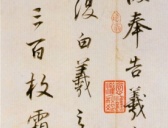 復奉告羲
復白羲之
三百枚霜